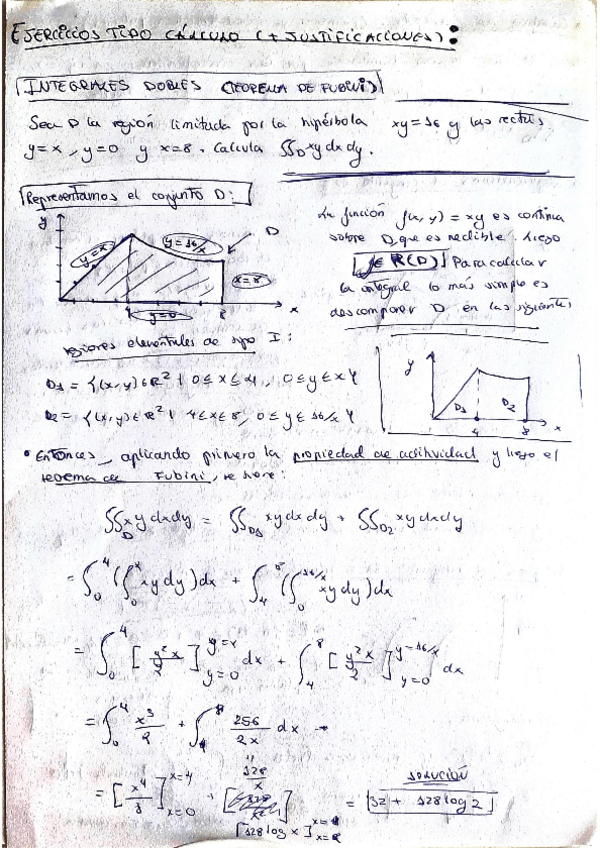 EJERCICIOS TIPO CÁLCULO (+ JUSTIFICACIONES):
INTEGRALES DOBLES (TEOREMA DE FUBINI)
Sea D la región limitada por la hipérbola xy=16 y las rectas
y=x, y=0 y x=8. Calcula ∬_D xy dx dy.
Representamos el conjunto D:
y
y=x
y=16/x
D
x=8
4
y=0
8
x
La función f(x,y) = xy es continua
sobre D, que es medible. Luego
f∈R(D) Para calcular
la integral lo más simple es
descomponer D en las siguientes
regiones elementales de tipo I:
D1 = {(x,y)∈R² | 0≤x≤4, 0≤y≤x}
D2 = {(x,y)∈R² | 4≤x≤8, 0≤y≤16/x}
y
D1
D2
4
8
x
• Entonces, aplicando primero la propiedad de aditividad y luego el
teorema de Fubini, se tiene:
∬_D xy dx dy = ∬_D1 xy dx dy + ∬_D2 xy dx dy
= ∫_0^4 (∫_0^x xy dy) dx + ∫_4^8 (∫_0^{16/x} xy dy) dx
= ∫_0^4 [y²x/2]_{y=0}^{y=x} dx + ∫_4^8 [y²x/2]_{y=0}^{y=16/x} dx
= ∫_0^4 x³/2 + ∫_4^8 256/2x dx
"
128/x
= [x⁴/8]_{x=0}^{x=4} +
[128 log x]
SOLUCIÓN
= 32 + 128 log 2